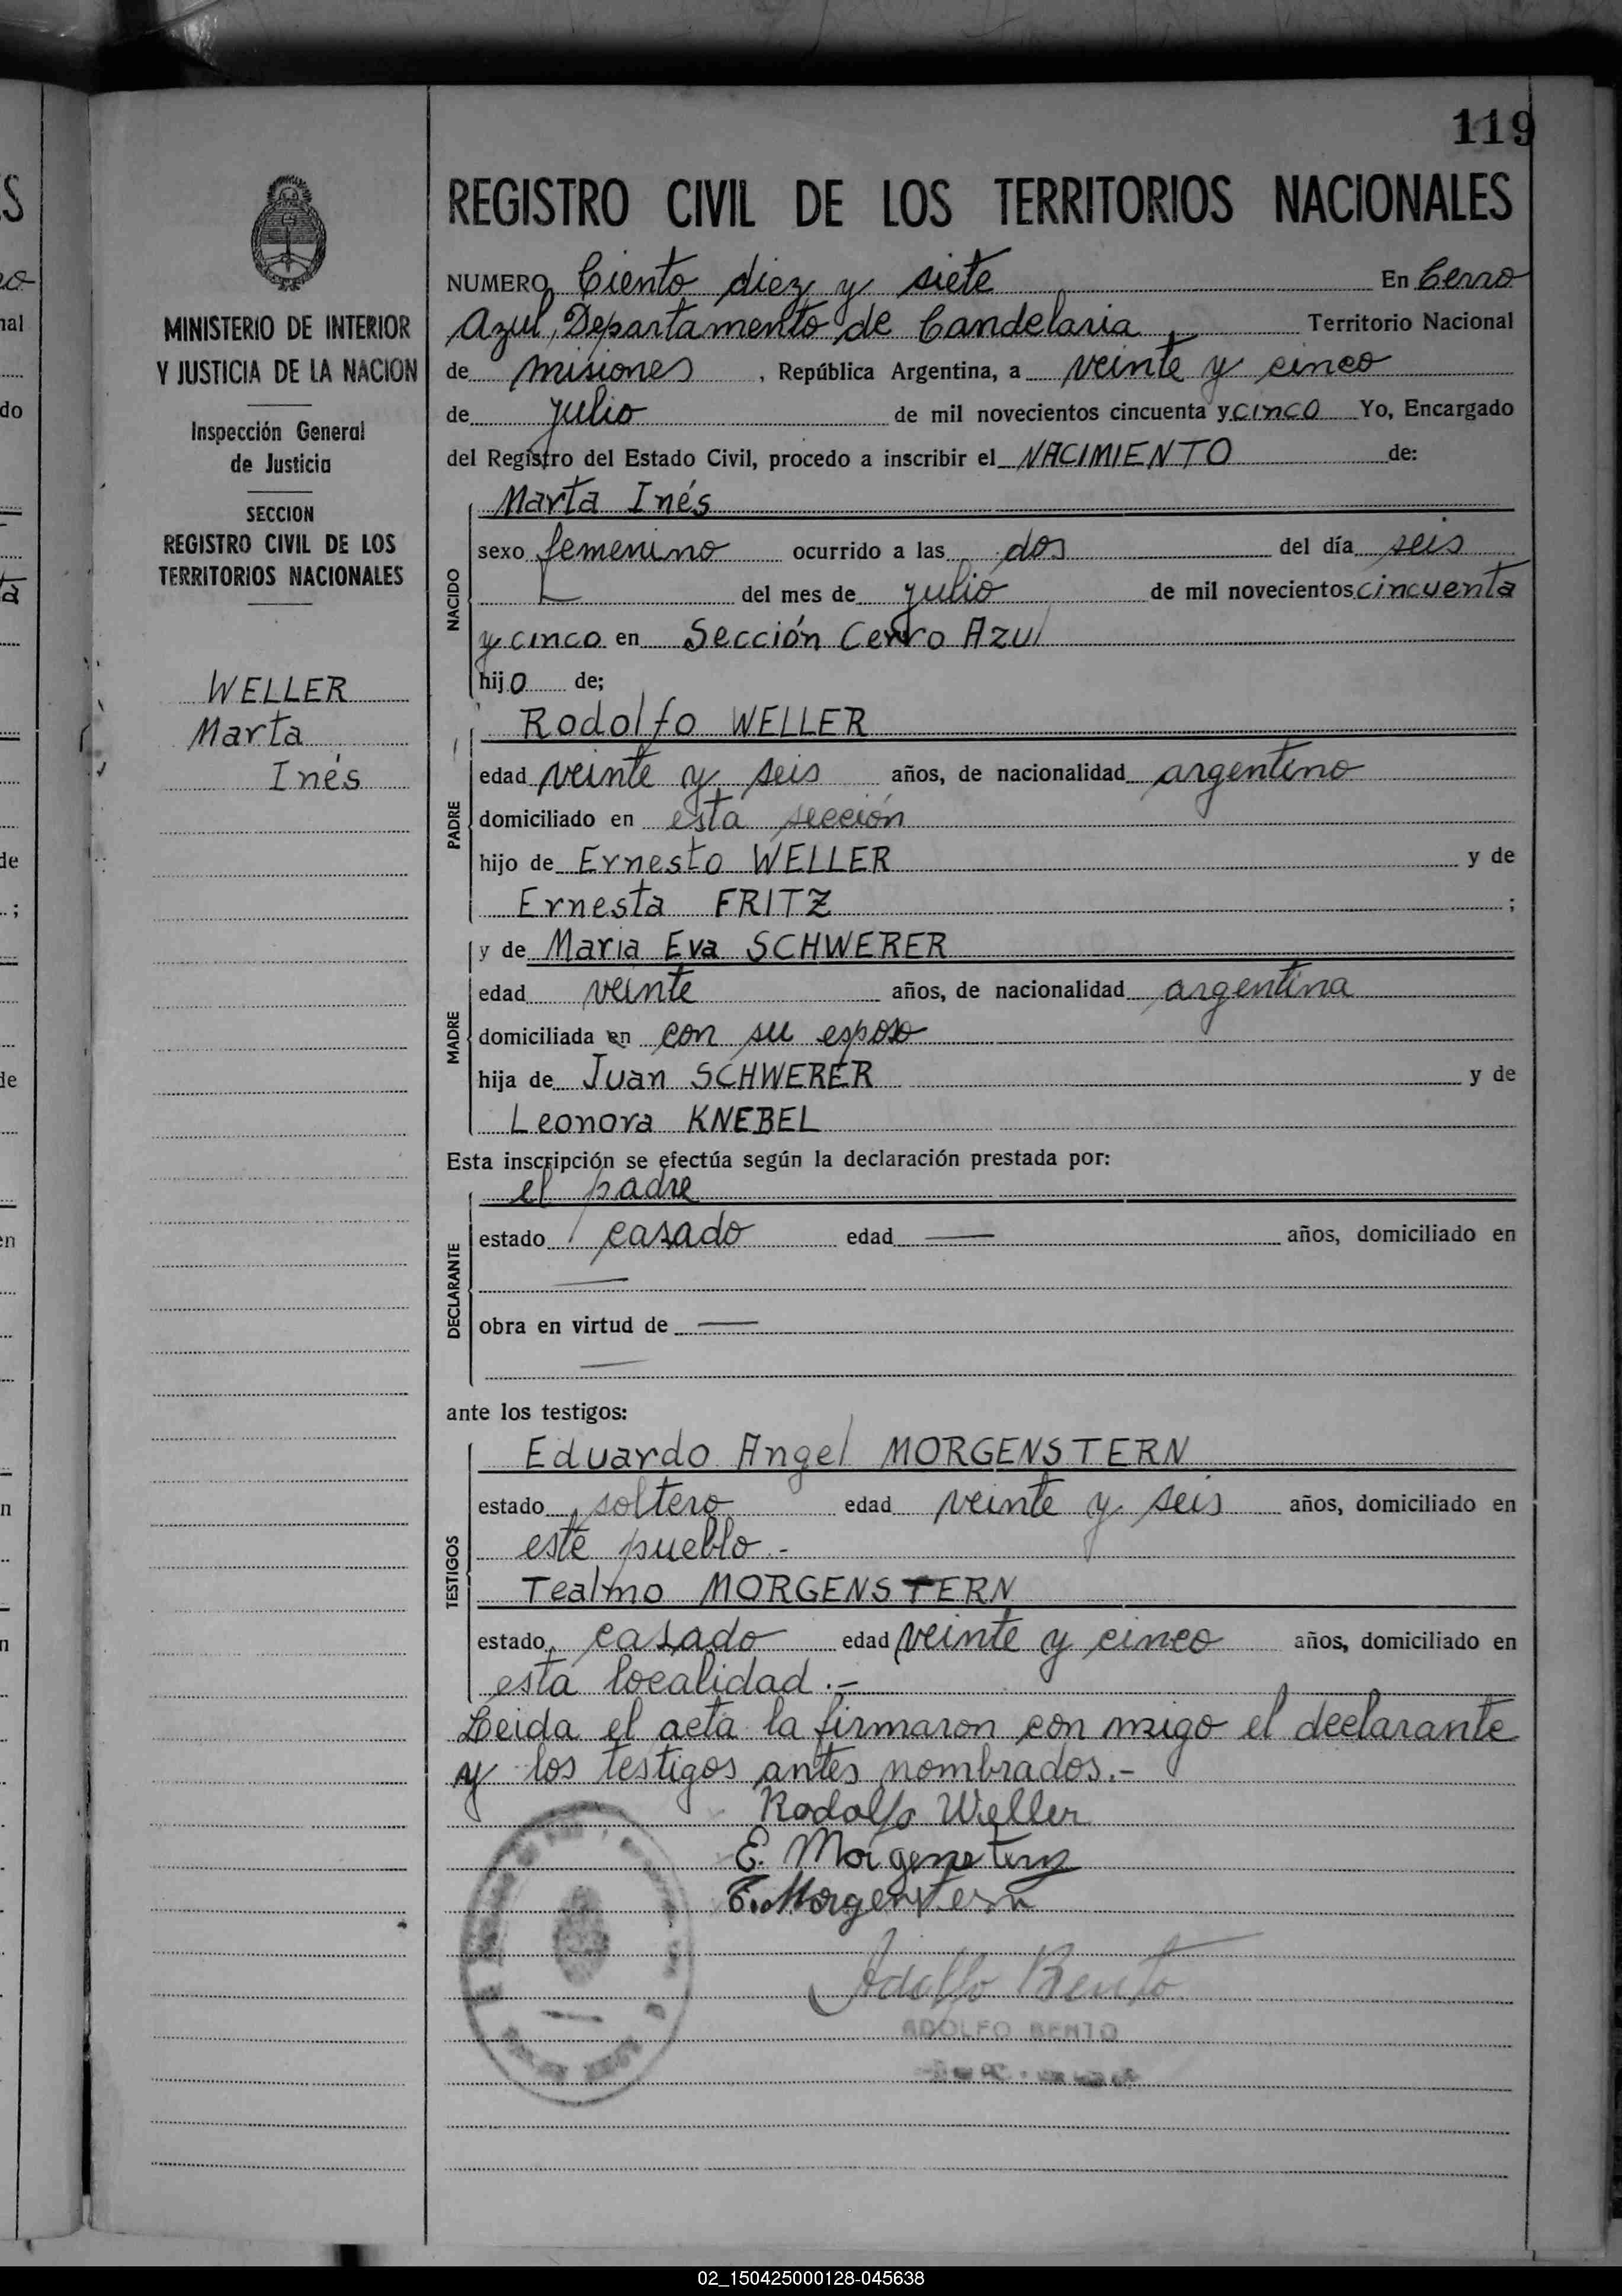 119
REGISTRO CIVIL DE LOS TERRITORIOS NACIONALES
MINISTERIO DE INTERIOR
Y JUSTICIA DE LA NACION
Inspección General
de Justicia
SECCION
REGISTRO CIVIL DE LOS
TERRITORIOS NACIONALES
WELLER
Marta
Inés
NUMERO Ciento diez y siete En Cerro
Azul, Departamento de Candelaria, Territorio Nacional
de misiones, República Argentina, a veinte y cinco
de julio de mil novecientos cincuenta y cinco Yo, Encargado
del Registro del Estado Civil, procedo a inscribir el NACIMIENTO de:
NACIDO
Marta Inés
sexo femenino ocurrido a las dos del día seis
del mes de julio de mil novecientos cincuenta
y cinco en Sección Cerro Azul
hijo de;
PADRE
Rodolfo WELLER
edad veinte y seis años, de nacionalidad argentino
domiciliado en esta sección
hijo de Ernesto WELLER y de
Ernesta FRITZ ;
MADRE
y de Maria Eva SCHWERER
edad veinte años, de nacionalidad argentina
domiciliada en con su esposo
hija de Juan SCHWERER y de
Leonora KNEBEL
Esta inscripción se efectúa según la declaración prestada por:
DECLARANTE
el padre
estado casado edad — años, domiciliado en
—
obra en virtud de —
—
ante los testigos:
TESTIGOS
Eduardo Angel MORGENSTERN
estado soltero edad veinte y seis años, domiciliado en
este pueblo.-
Tealmo MORGENSTERN
estado casado edad veinte y cinco años, domiciliado en
esta localidad.-
Leida el acta la firmaron con migo el declarante
y los testigos antes nombrados.-
Rodolfo Weller
E. Morgenstern
T. Morgenstern
Adolfo Bento
ADOLFO BENTO
02_150425000128-045638